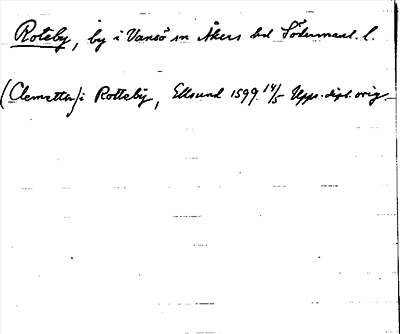 Roteby, by i Vansö sn Åkers hd Södermanl. l.
(Clemetten) i Rotteby, Ellsund 1599 14/5 Upps. dipl. orig.